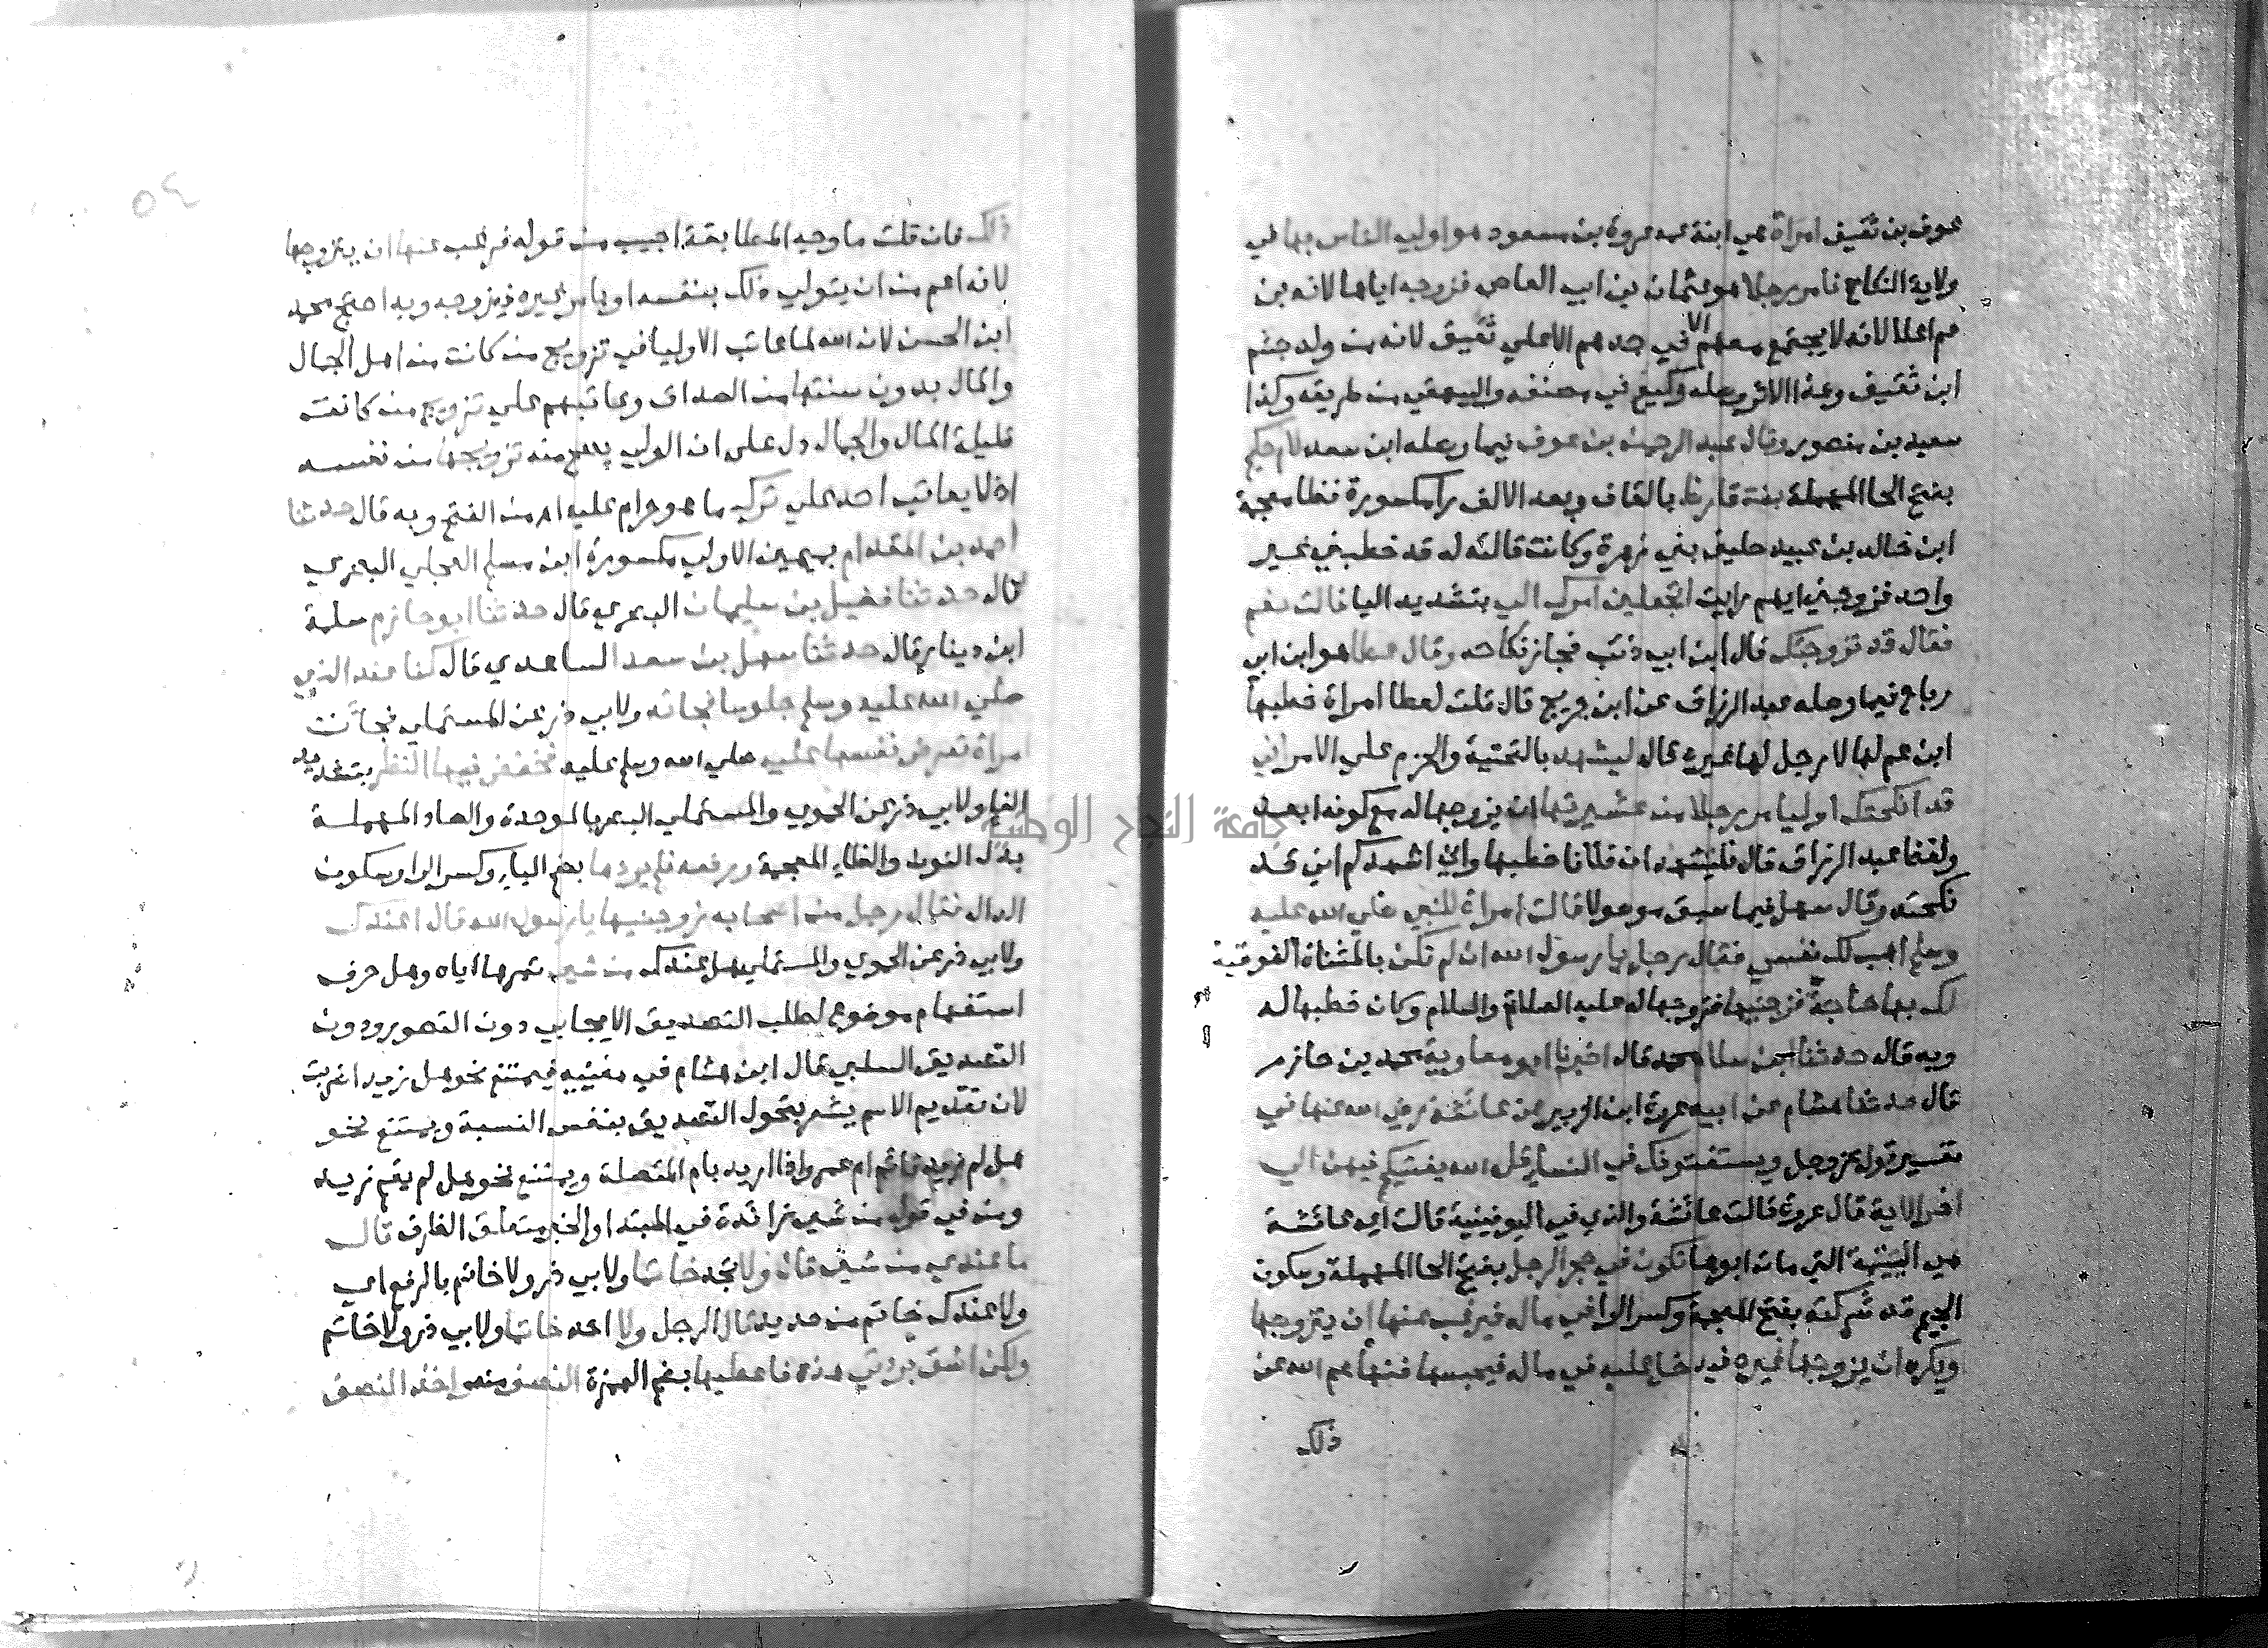 عوف بن ثقيف امراة هي ابنة عمه عروة بن مسعود هو اولي الناس بها في
ولاية النكاح فامر رجلا هو عثمان بن ابي العاص فزوجه اياها لانه بن
عم اعلا لانه لا يجتمع معهم الا في جدهم الاعلي ثقيف لانه من ولد جشم
ابن ثقيف وهذا الاثر وصله وكيع في مصنفه والبيهقي من طريقه وكذا
سعيد بن منصور وقال عبد الرحمن بن عوف فيما وصله ابن سعد لام حكيم
بفتح الحا المهملة بنت قارظ بالقاف وبعد الالف را مكسورة فظا معجمة
ابن خالد بن عبيد حليف بني زهرة وكانت قالت له قد خطبني غير
واحد فزوجني ايهم رايت اتجعلين امرك الي بتشديد اليا قالت نعم
فقال قد تزوجتك قال ابن ابي ذئب فجاز نكاحه وقال عطا هو ابن ابي
رباح فيما وصله عبد الرزاق عن ابن جريج قال قلت لعطا امراة خطبها
ابن عم لها لا رجل لها غيره قال ليشهد بالتحتية والجزم علي الامر اني
قد انكحتك او ليامر رجلا من عشيرتها ان يزوجها له مع كونه ابعد
ولفظ عبد الرزاق قال فليشهد ان فلانا خطبها واني اشهدكم اني قد
نكحته وقال سهل فيما سبق موصولا قالت امراة للنبي صلي الله عليه
وسلم اهب لك نفسي فقال رجل يا رسول الله ان لم تكن بالمثناة الفوقية
لك بها حاجة فزوجنيها فزوجها له عليه الصلاة والسلام وكان خطبها له
وبه قال حدثنا ابن سلام محمد قال اخبرنا ابو معاوية محمد بن حازم
قال حدثنا هشام عن ابيه عروة ابن الزبير عن عائشة رضي الله عنها في
تفسير قوله عز وجل ويستفتونك في النساء قل الله يفتيكم فيهن الي
اخر الاية قال عروة قالت عائشة والذي في اليونينية قالت اي عائشة
هي اليتيمة التي مات ابوها تكون في حجر الرجل بفتح الحا المهملة وسكون
الجيم قد شركته بفتح المعجمة وكسر الرا في ماله فيرغب عنها ان يتزوجها
ويكره ان يزوجها غيره فيدخل عليه في ماله فيحبسها فنهاهم الله عن
ذلك
ذلك فان قلت ما وجه المطابقة اجيب من قوله فيرغب عنها ان يتزوجها
لانه اعم من ان يتولي ذلك بنفسه او يامر غيره فيزوجه وبه احتج محمد
ابن الحسن لان الله لما عاتب الاوليا في تزويج من كانت من اهل الجمال
والمال بدون سنتها من الصداق وعاتبهم علي تزويج من كانت
قليلة المال والجمال دل علي ان الولي يصح منه تزويجها من نفسه
اذ لا يعاتب احد علي ترك ما هو حرام عليه اه من الفتح وبه قال حدثنا
احمد بن المقدام بميمين الاولي مكسورة ابن مسلم العجلي البصري
قال حدثنا فضيل بن سليمان البصري قال حدثنا ابو حازم سلمة
ابن دينار قال حدثنا سهل بن سعد الساعدي قال كنا عند النبي
صلي الله عليه وسلم جلوسا فجاته ولابي ذر عن المستملي فجات
امراة تعرض نفسها عليه صلي الله وسلم عليه فخفض فيها النظر بتشديد
الفا ولابي ذر عن الحموي والمستملي البصر بالموحدة والصاد المهملة
بدل النون والظاء المعجمة ورفعه فلم يردها بضم الياء وكسر الرا وسكون
الدال فقال رجل من اصحابه زوجنيها يا رسول الله قال اعندك
ولابي ذر عن الحموي والمستملي هل عندك من شي تمهرها اياه وهل حرف
استفهام موضوع لطلب التصديق الايجابي دون التصور ودون
التصديق السلبي قال ابن هشام في مغنيه فيمتنع نحو هل زيد اضربت
لان تقديم الاسم يشعر بحصول التصديق بنفس النسبة ويمتنع نحو
هل لم زيد قائم ام عمرو اذا اريد بام المتصلة ويمتنع نحو هل لم يقم زيد
ومن في قوله من شي زائدة في المبتدا والخبر متعلق الظرف قال
ما عندي من شي قال ولا تجد خاتما ولابي ذر ولا خاتم بالرفع اي
ولا عندك خاتم من حديد قال الرجل ولا اجد خاتما ولابي ذر ولا خاتم
ولكن اشق بردتي هذه فاعطيها بضم الهمزة النصف منه واخذ النصف
٥٤
جامعة النجاح الوطنية